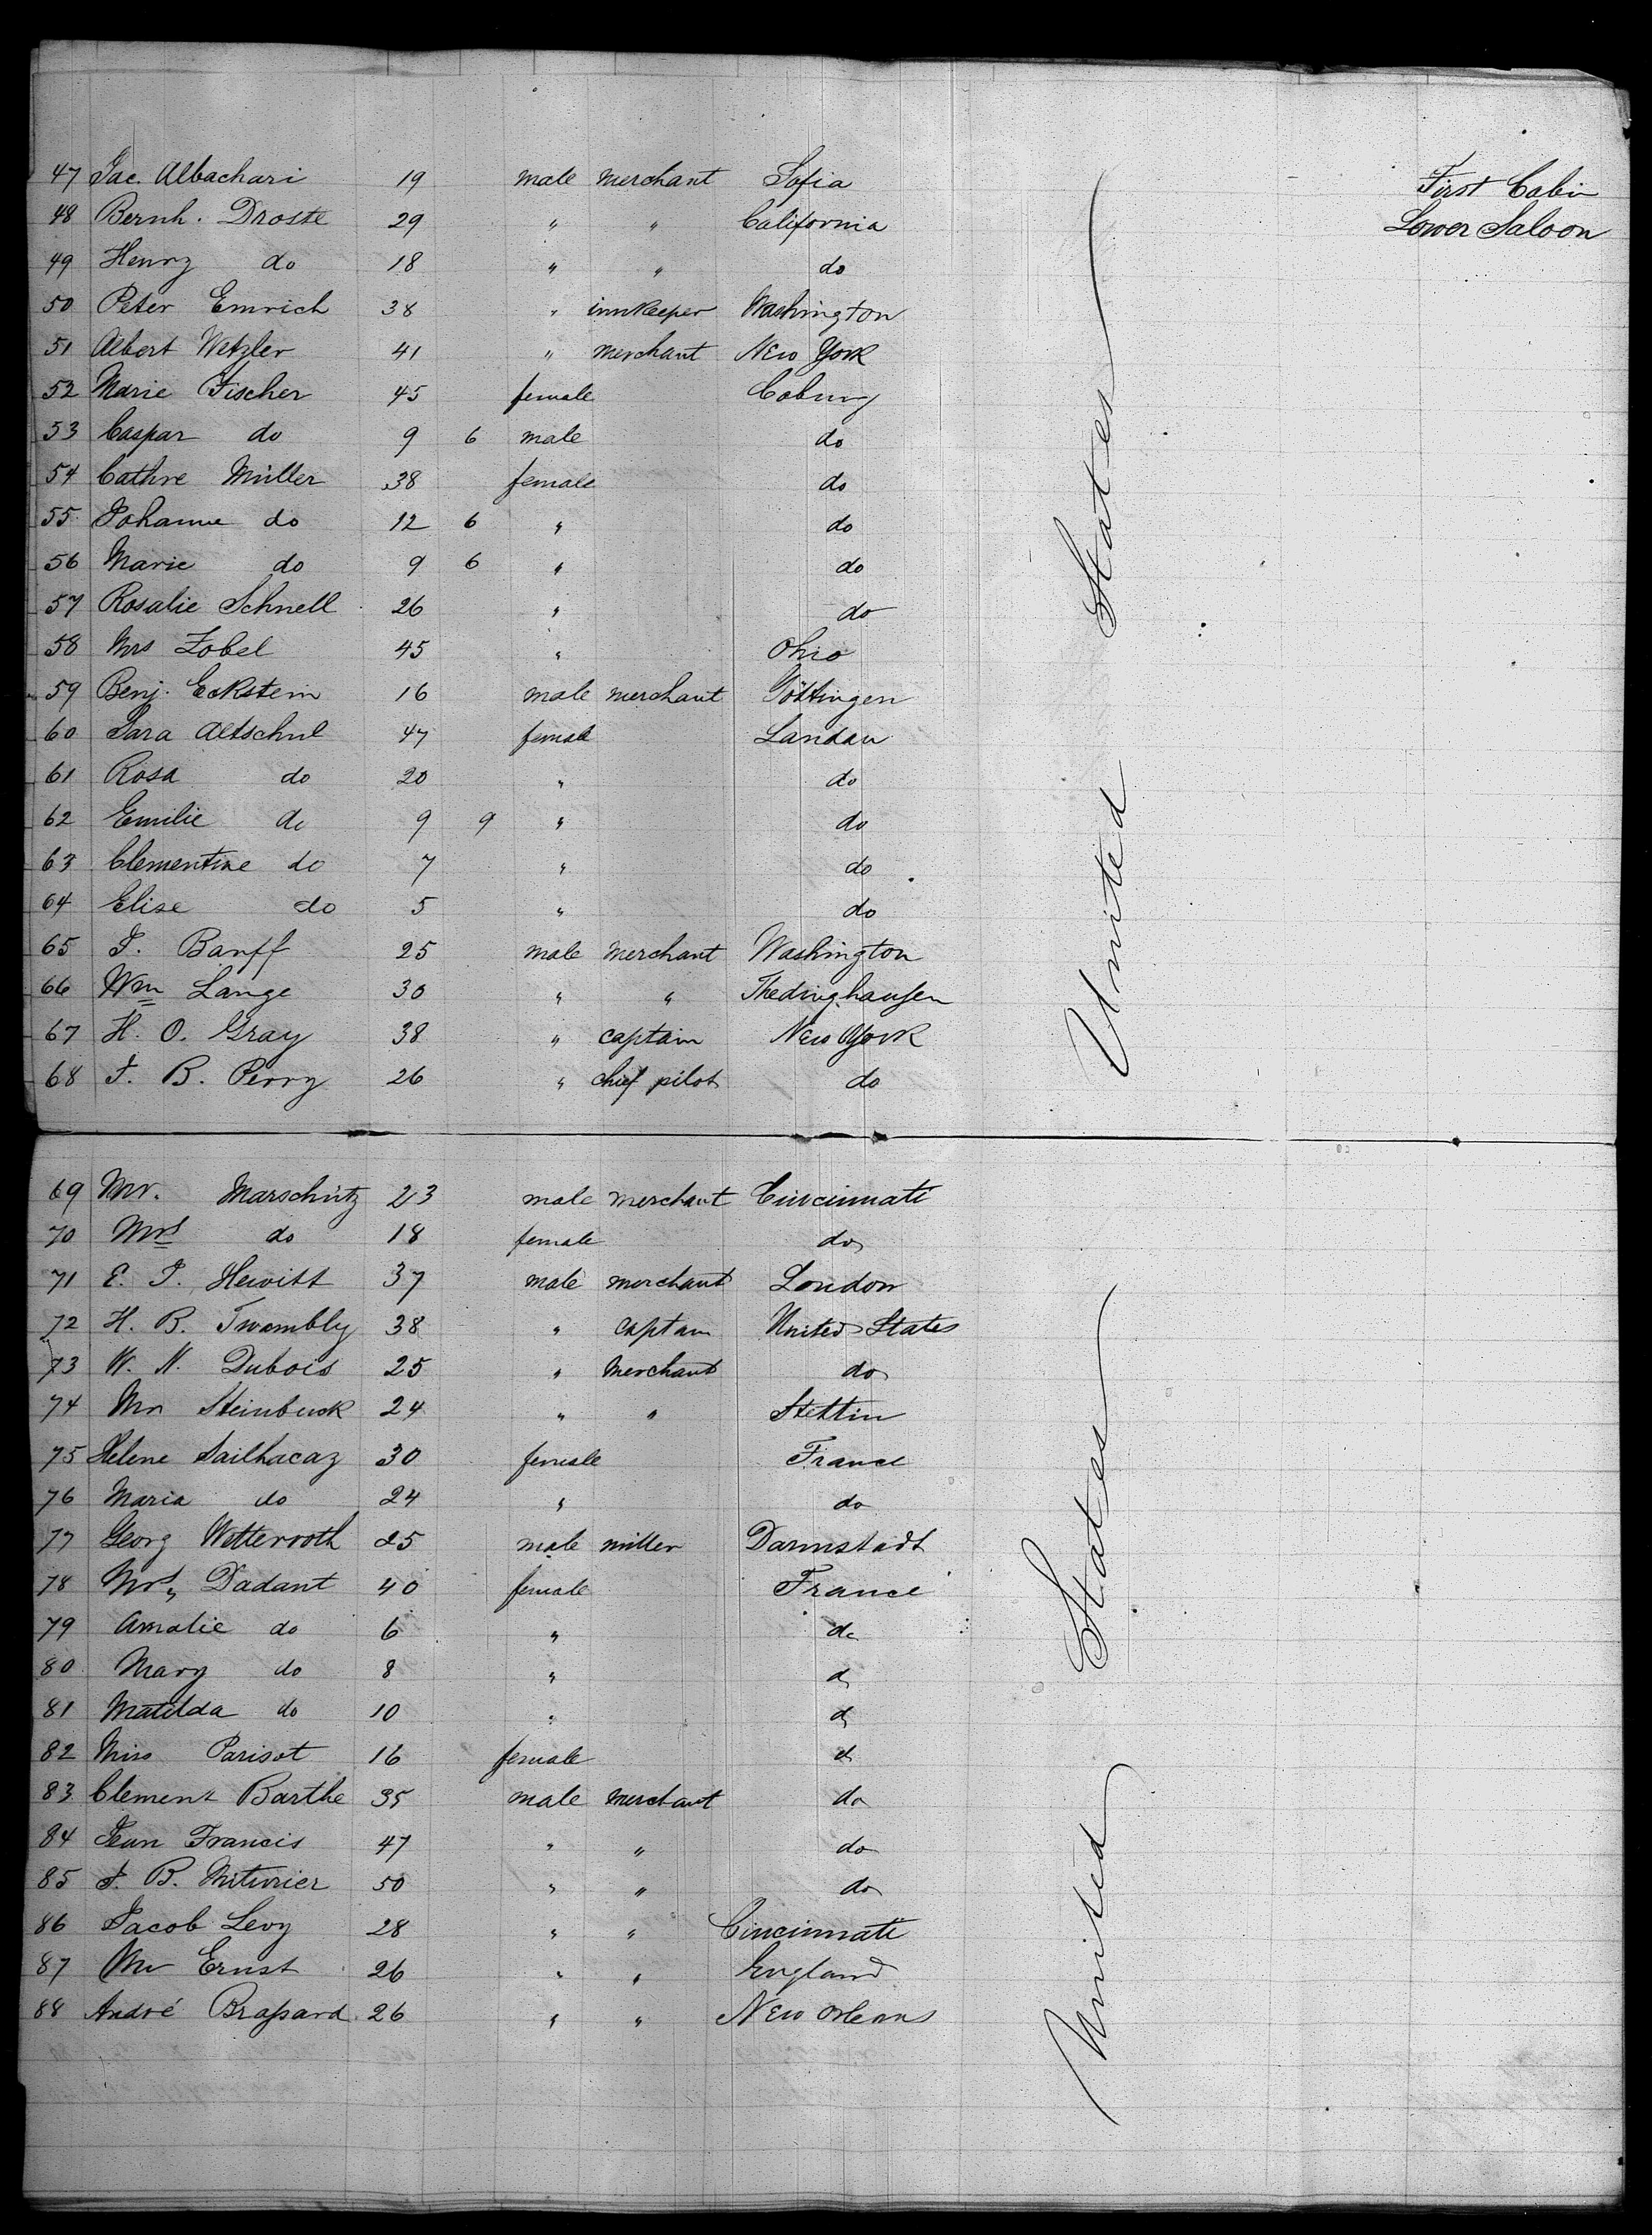 47 Jac. Albachari 19 male merchant Sofia First Cabin
48 Bernh. Droste 29 " " California Lower Saloon
49 Henry do 18 " " do
50 Peter Emrich 38 " innkeeper Washington
51 Albert Wetzler 41 " merchant New York
52 Marie Fischer 45 female Coburg
53 Caspar do 9 6 male do
54 Cathre Müller 38 female do
55 Johanne do 12 6 " do
56 Marie do 9 6 " do
57 Rosalie Schnell 26 " do
58 Mrs Zobel 45 " Ohio
59 Benj. Eckstein 16 male merchant Göttingen
60 Sara Altschul 47 female Landau
61 Rosa do 20 " do
62 Emilie do 9 9 " do
63 Clementine do 7 " do
64 Elise do 5 " do
65 J. Banff 25 male merchant Washington
66 Wm Lange 30 " " Thedinghausen
67 H. O. Gray 38 " captain New York
68 J. B. Perry 26 " chief pilot do
United States
69 Mr. Marschütz 23 male merchant Cincinnati
70 Mrs do 18 female do
71 E. J. Hewitt 37 male merchant London
72 H. B. Twombly 38 " captain United States
73 W. N. Dubois 25 " merchant do
74 Mr Steinbuck 24 " " Stettin
75 Helene Sailhacaz 30 female France
76 Maria do 24 " do
77 Georg Wetterroth 25 male miller Darmstadt
78 Mrs Dadant 40 female France
79 Amalie do 6 " do
80 Mary do 8 " d
81 Matilda do 10 " d
82 Miss Parisot 16 female d
83 Clement Barthe 35 male merchant do
84 Jean Francis 47 " " do
85 J. B. 50 " " do
86 Jacob Levy 28 " " Cincinnati
87 Mr Ernst 26 " " England
88 André Brassard 26 " " New Orleans
United States